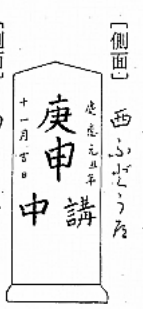 ［側面］
西ふどう道
慶應元丑年
庚申
講中
十一月吉日